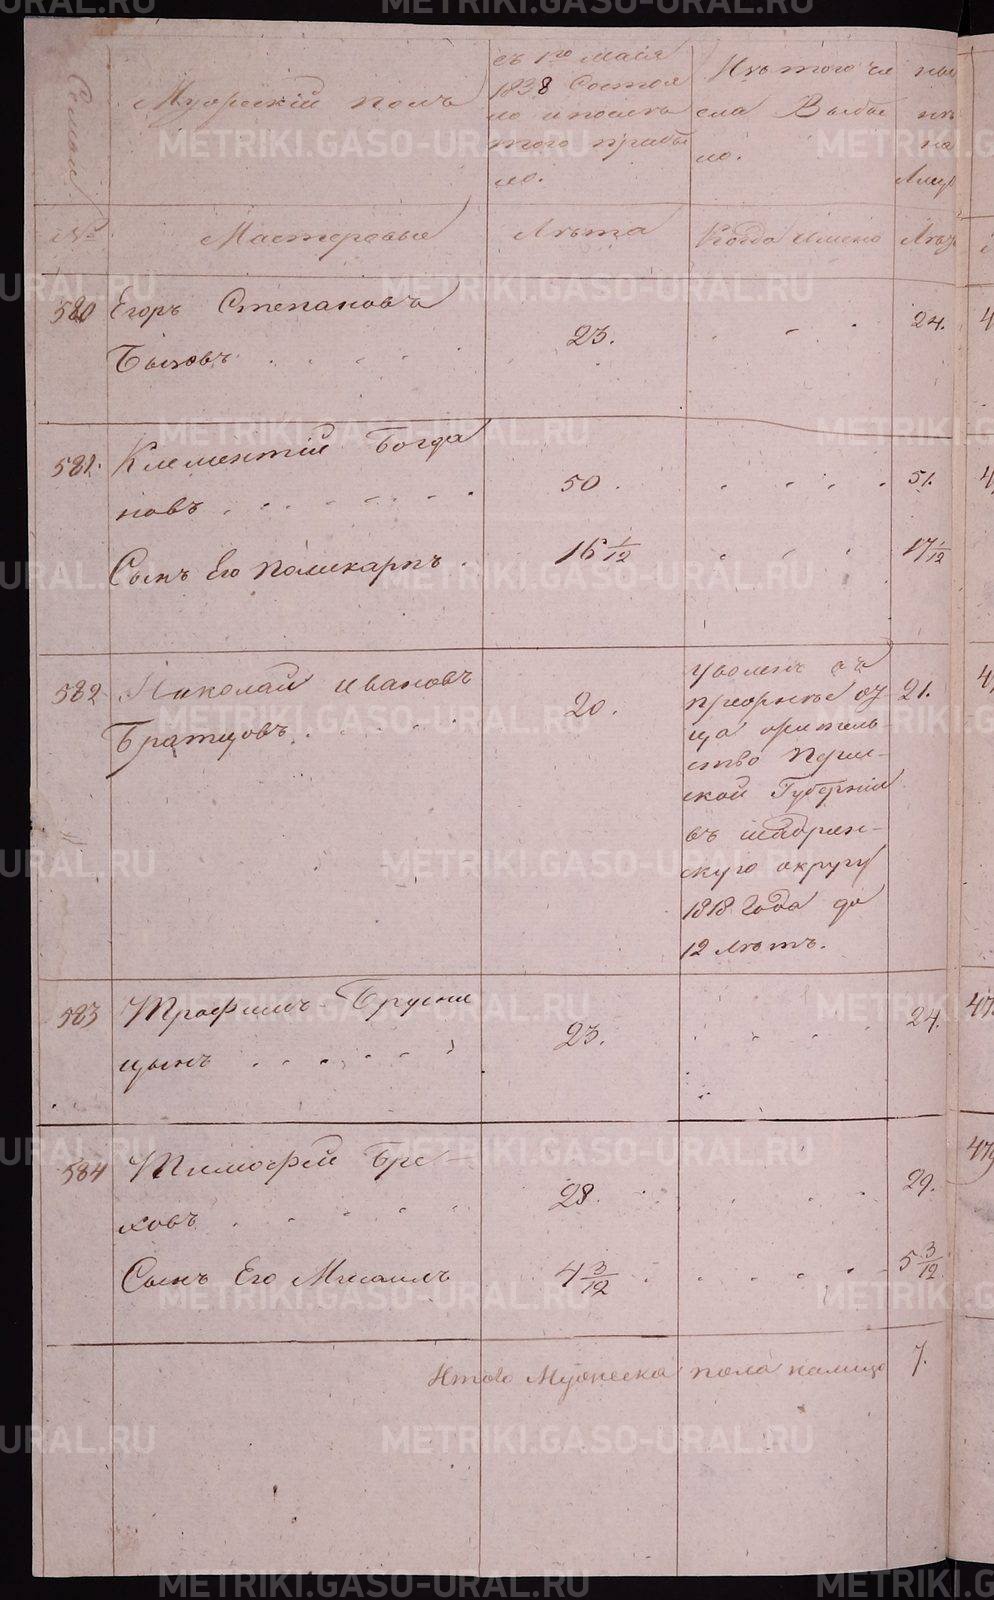 Семьи
Мужескій полъ
съ 1го Майя
1838 Состоя
ло и послѣ
того прибы
ло.
Изъ того чи
сла Выбы
ло.
ны
на
Лиц
№
Мастеровые
Лѣта
Когда имено
Лѣ
580 Егоръ Степановъ
Быковъ
23.
24.
581. Клементій Богда
новъ
50.
51.
Сынъ Его Поликарпъ.
16 1/12
17 1/12
582 Николай Ивановъ
Братцовъ
20.
Уволенъ
отца жительство Перм-
ской Губерніи
въ шадрин-
скую округу
1818 Года до
12 Лѣтъ.
21.
583 Трофимъ Брусни
цынъ
23.
24.
584 Тимофей Бре-
ховъ
28.
29.
Сынъ Его Михаилъ
4 3/12
5 3/12
Итого Мужеска пола налицо 7.
METRIKI.GASO-URAL.RU